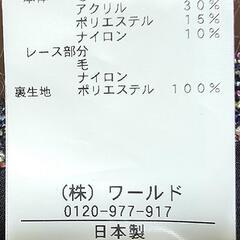 アクリル 30%
ポリエステル 15%
ナイロン 10%
レース部分
毛
ナイロン
裏生地 ポリエステル 100%
(株) ワールド
0120-977-917
日本製